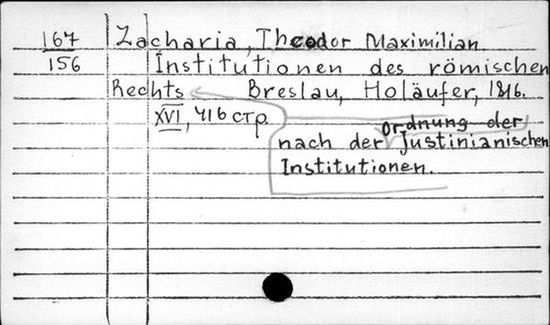 167 Zacharia, Theodor Maximilian
156 Institutionen des römischen
Rechts Breslau, Holäufer, 1816.
XVI, 416 стр.
Ordnung der
nach der Justinianischen
Institutionen.